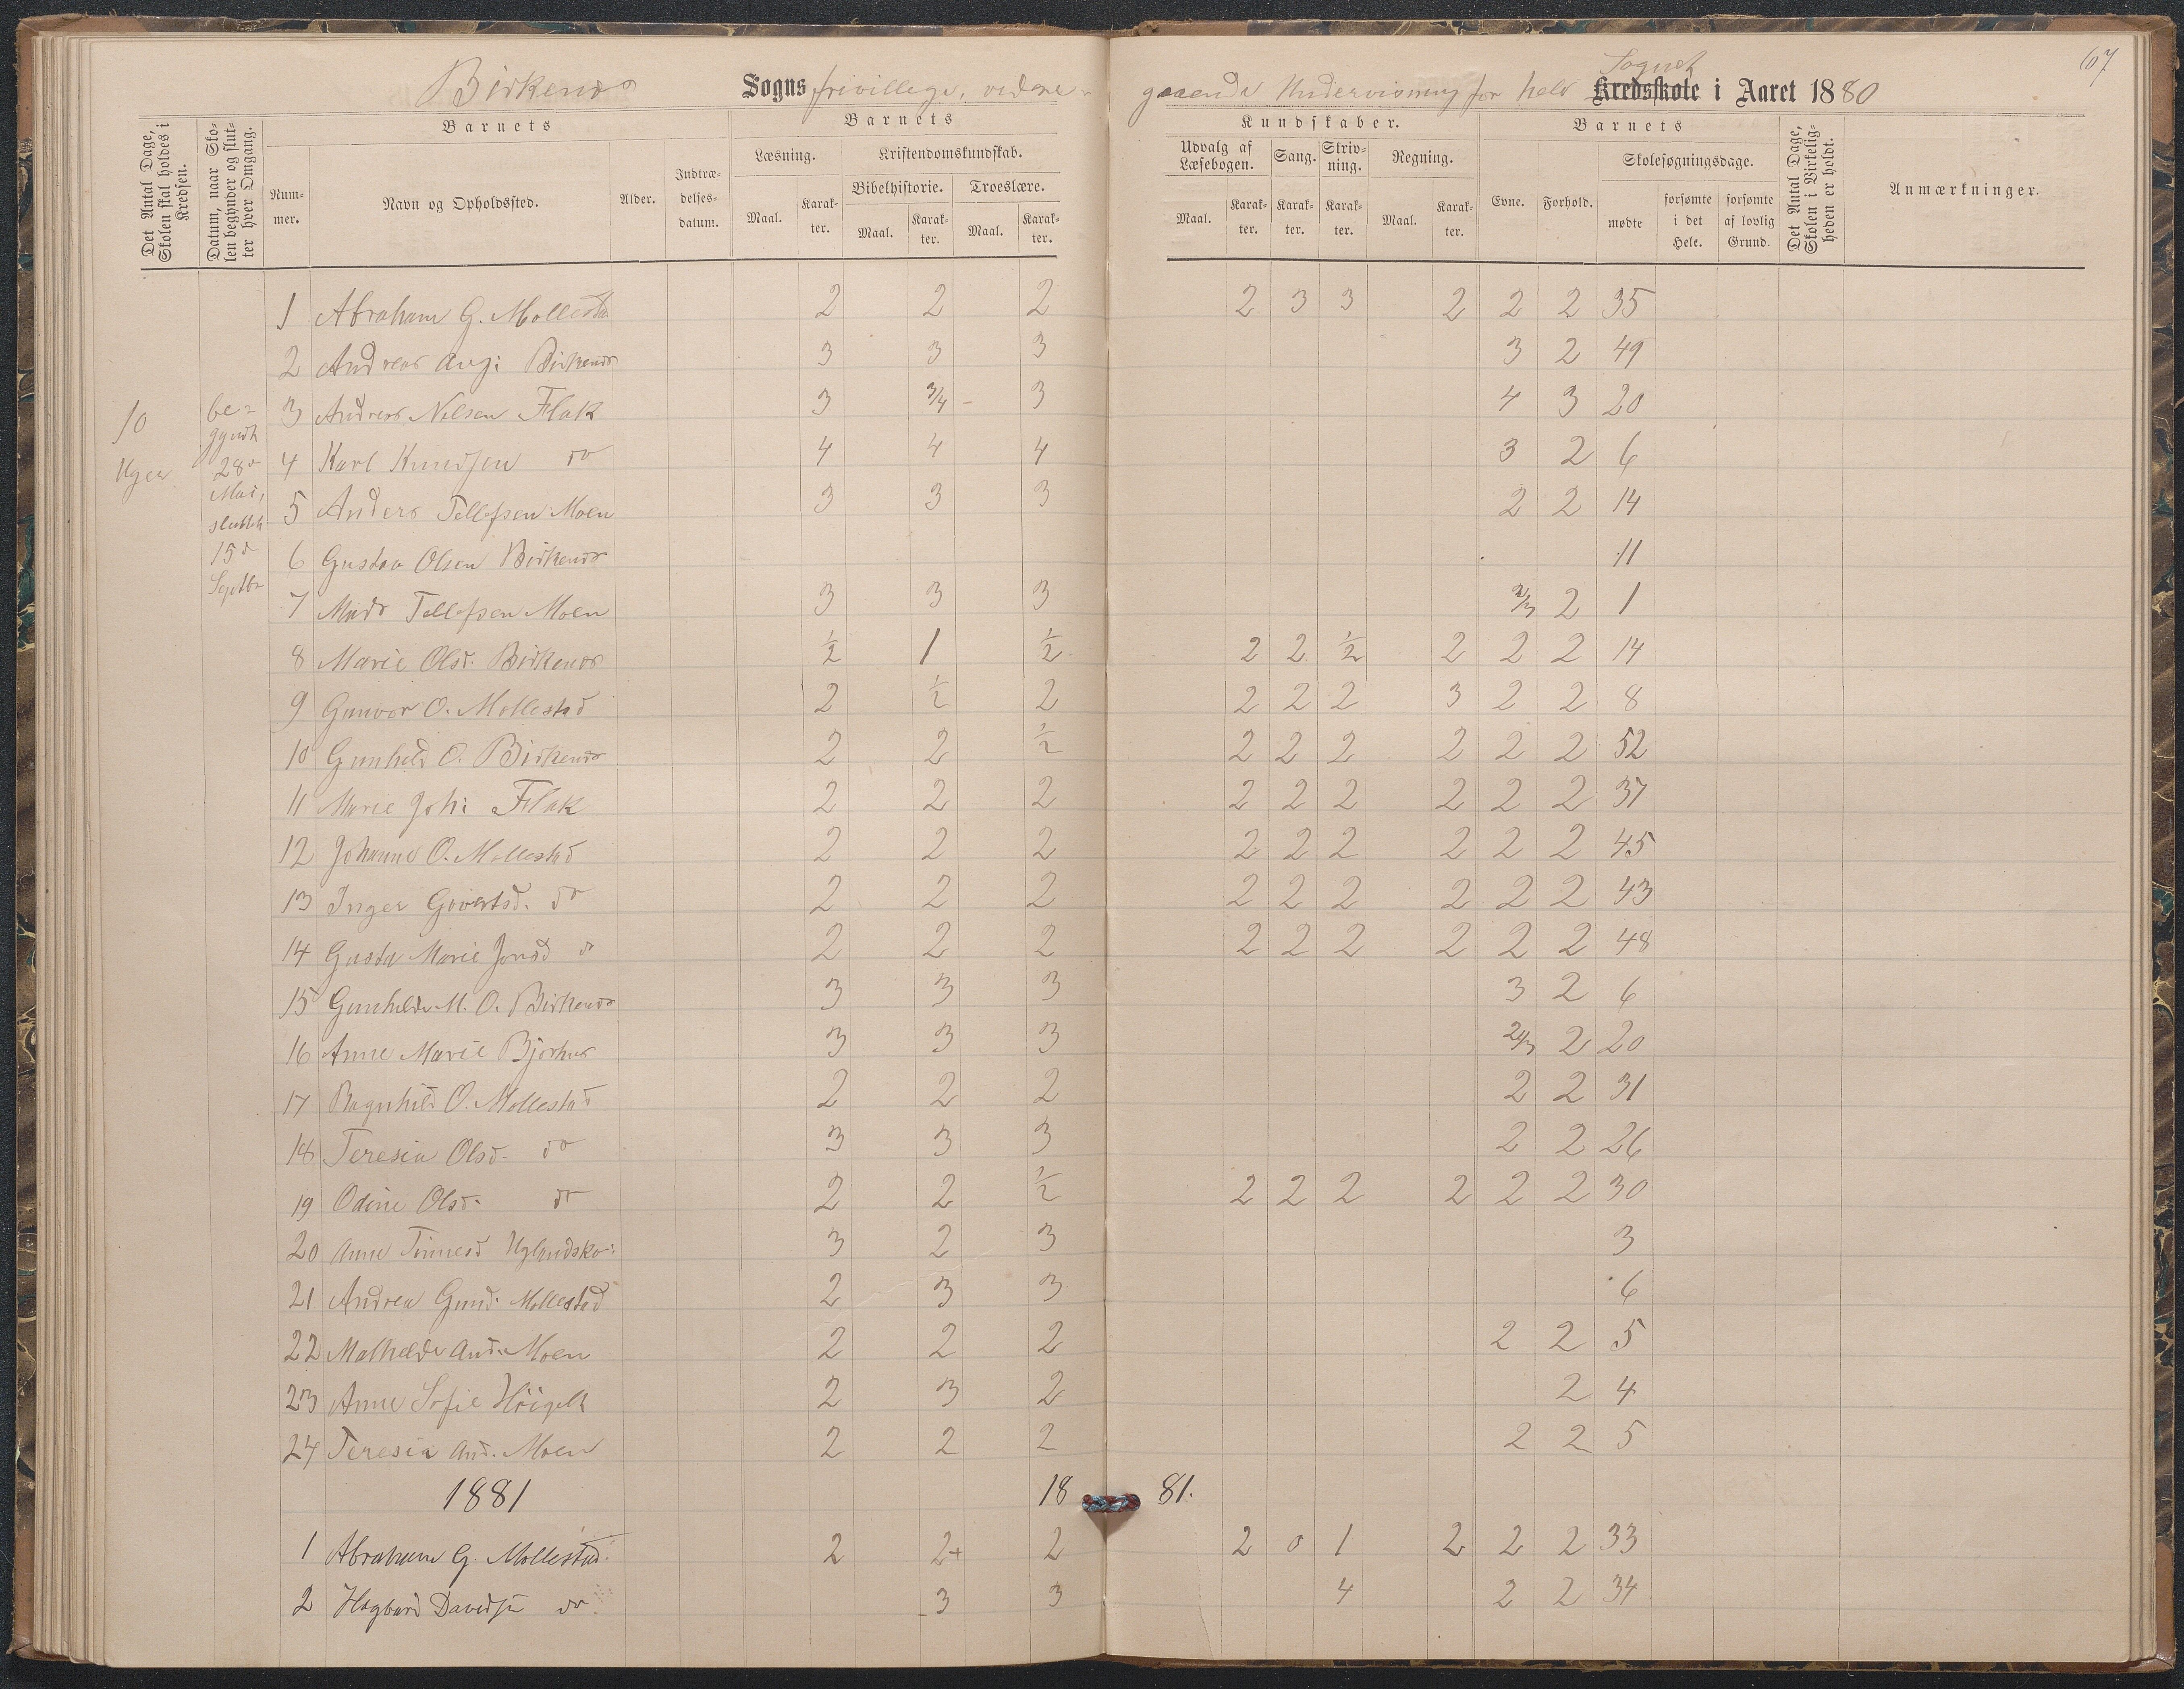 67
Birkenes Sogns frivillige, videre-
gaaende Undervisning for hele Sognet Kredsskole i Aaret 1880
Det Antal Dage, Skolen skal holdes i Kredsen.
Datum, naar Skolen begynder og slutter hver Omgang.
Nummer.
Barnets
Navn og Opholdssted.
Alder.
Indtrædelsesdatum.
Barnets
Læsning.
Maal.
Karakter.
Kristendomskundskab.
Bibelhistorie.
Maal.
Karakter.
Troeslære.
Maal.
Karakter.
Kundskaber.
Udvalg af Læsebogen.
Maal.
Karakter.
Sang.
Karakter.
Skrivning.
Karakter.
Regning.
Maal.
Karakter.
Barnets
Evne.
Forhold.
Skolesøgningsdage.
mødte
forsømte i det Hele.
forsømte af lovlig Grund.
Det Antal Dage, Skolen i Virkeligheden er holdt.
Anmærkninger.
10
Uger
be-
gyndt
28de
Mai,
sluttet
15de
Septbr
1 Abraham G. Mollestad 2 2 2 2 3 3 2 2 2 35
2 Andreas Aug: Birkenes 3 3 3 3 2 49
3 Anders Nelsen Flak 3 3/4 - 3 4 3 20
4 Karl Knudsen do 4 4 4 3 2 6
5 Anders Tellefsen Moen 3 3 3 2 2 14
6 Gustav Olsen Birkenes 11
7 Mads Tellefsen Moen 3 3 3 2/3 2 1
8 Marie Olsd. Birkenes 1/2 1 1/2 2 2 1/2 2 2 2 14
9 Gunvor O. Mollestad 2 1/2 2 2 2 2 3 2 2 8
10 Gunhild O. Birkenes 2 2 1/2 2 2 2 2 2 2 52
11 Marie Joh: Flak 2 2 2 2 2 2 2 2 2 37
12 Johanne O. Mollestad 2 2 2 2 2 2 2 2 2 45
13 Inger Govertsd. do 2 2 2 2 2 2 2 2 2 43
14 Gusta Marie Jonsd do 2 2 2 2 2 2 2 2 2 48
15 Gunhilde M. O. Birkenes 3 3 3 3 2 6
16 Anne Marie Bjorhus 3 3 3 2/3 2 20
17 Ragnhild O. Mollestad 2 2 2 2 2 31
18 Teresia Olsd. do 3 3 3 2 2 26
19 Odine Olsd. do 2 2 1/2 2 2 2 2 2 2 30
20 Anne Tinnesd Uglandskr: 3 2 3 3
21 Andrea Gund. Mollestad 2 3 3 6
22 Mathilde And. Moen 2 2 2 2 2 5
23 Anne Sofie 2 3 2 2 4
24 Teresia And. Moen 2 2 2 2 2 5
1881 18 81.
1 Abraham G. Mollestad. 2 2+ 2 2 0 1 2 2 2 33
2 Hagbard Davidsen do. 3 3 4 2 2 34